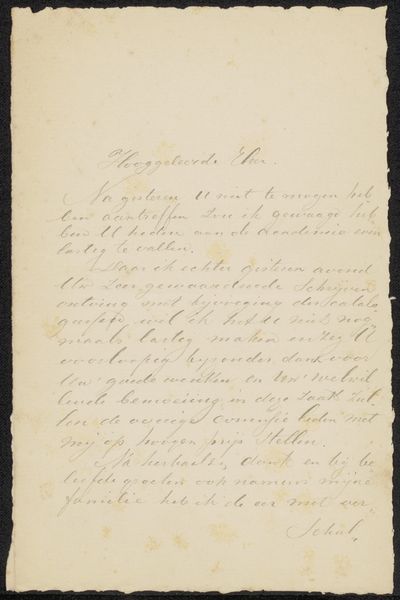 Hooggeleerde Heer.
Na gisteren U niet te mogen heb
ben aantreffen zou ik gewaagd heb
ben U heden aan de Academie even
lastig te vallen.
Daar ik echter gisteren avond
Uw zeer gewaardeerde Schrijven
ontving met bijvoeging der catalo
gussen wil ik het U niet nog
maals lastig maken en zeg U
voorloopig bijzonder dank voor
Uw goede wenken en Uw welwil
lende bemoeiing in deze zaak zul
len de overige commissie leden met
mij op hoogen prijs stellen.
Na herhaalden dank en bij be
leefde groeten ook namens mijne
familie heb ik de eer met ver„
Schul„